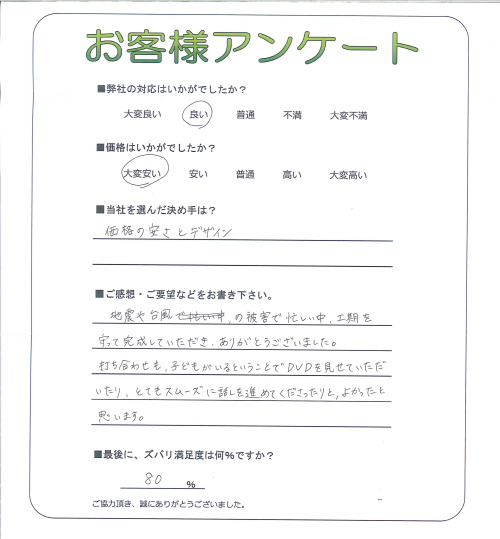 お客様アンケート
■弊社の対応はいかがでしたか？
大変良い 良い 普通 不満 大変不満
■価格はいかがでしたか？
大変安い 安い 普通 高い 大変高い
■当社を選んだ決め手は？
価格の安さとデザイン
■ご感想・ご要望などをお書き下さい。
地震や台風、の被害で忙しい中、工期を
守って完成していただき、ありがとうございました。
打ち合わせも、子どもがいるということでDVDを見せていただ
いたり、とてもスムーズに話しを進めてくださったりと、よかったと
思います。
■最後に、ズバリ満足度は何%ですか？
80 %
ご協力頂き、誠にありがとうございました。